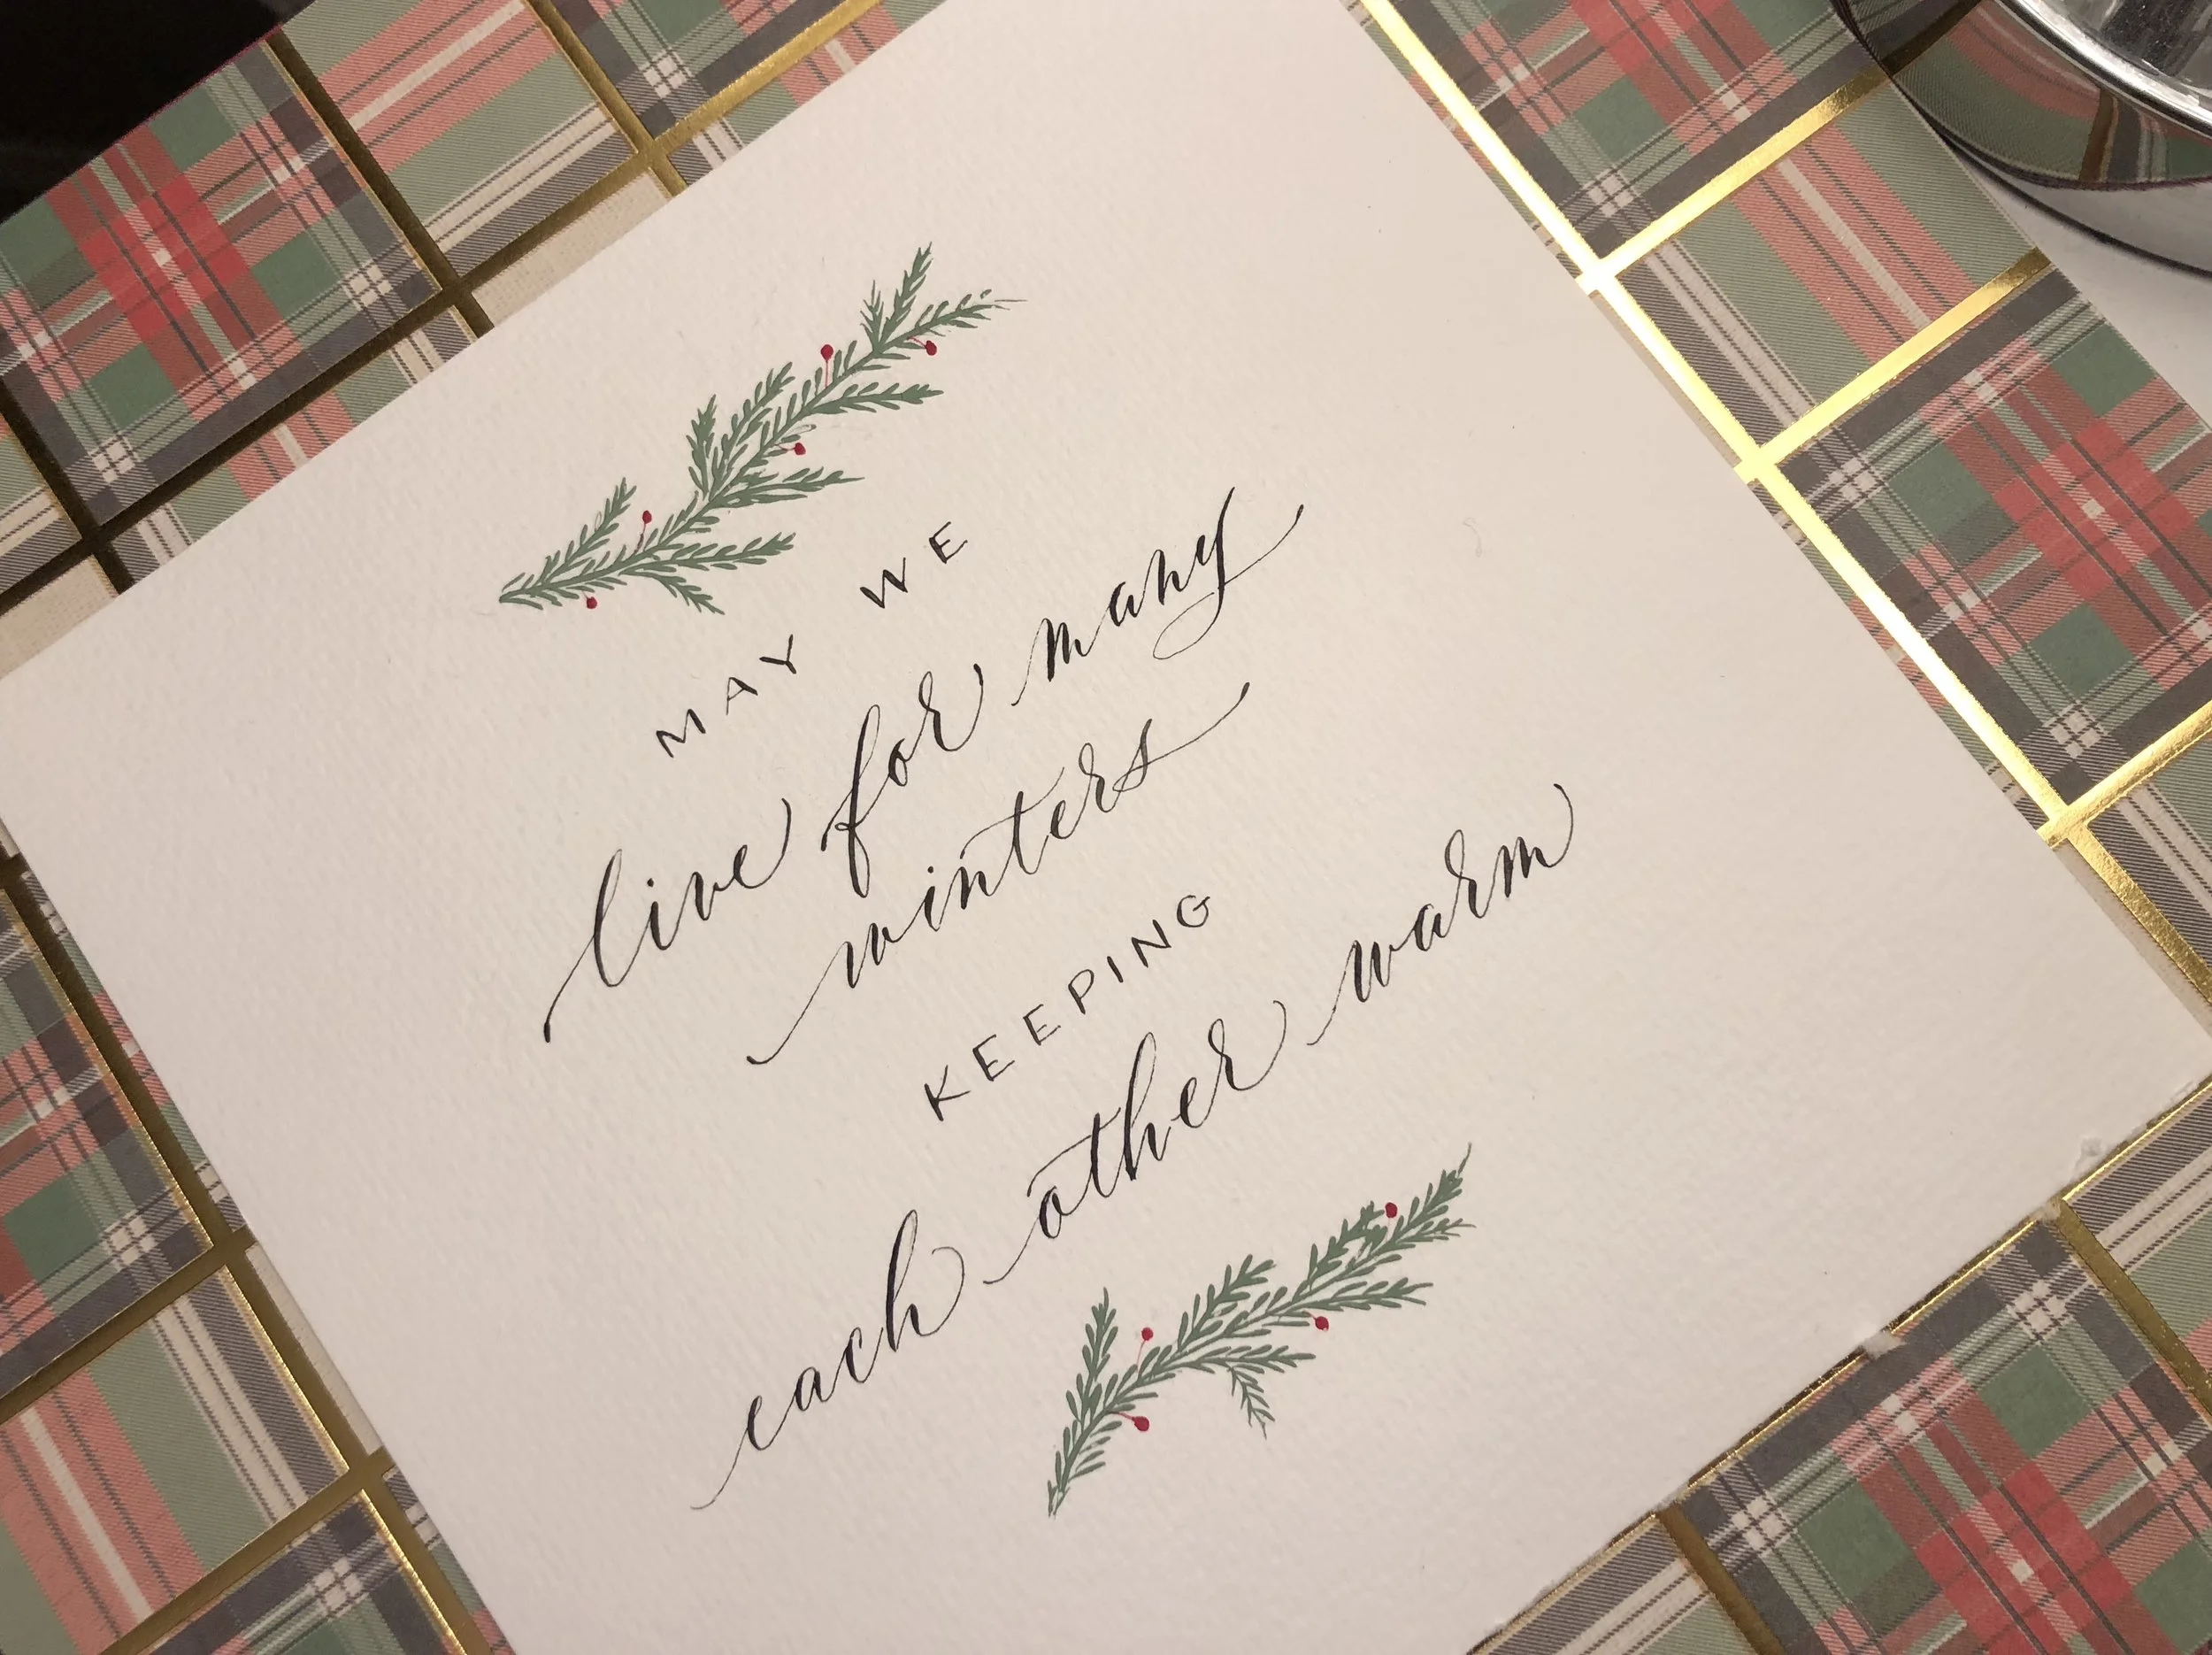 MAY WE
live for many
winters
KEEPING
each other warm